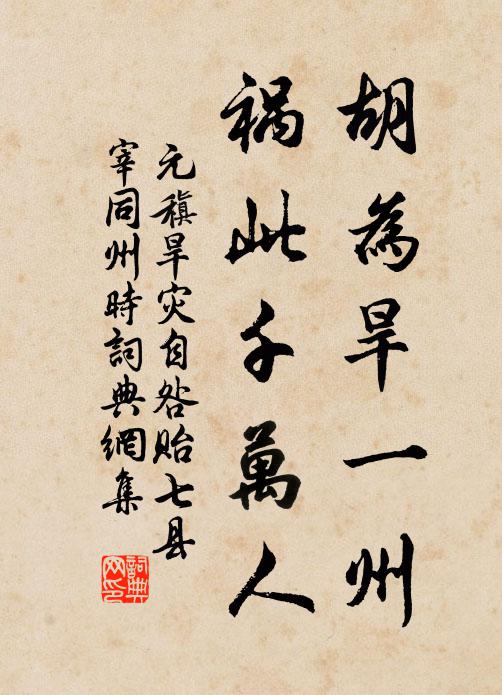 胡為旱一州
禍此千萬人
元稹旱灾自咎貽七县
宰同州時詞典網集
詞典
网印